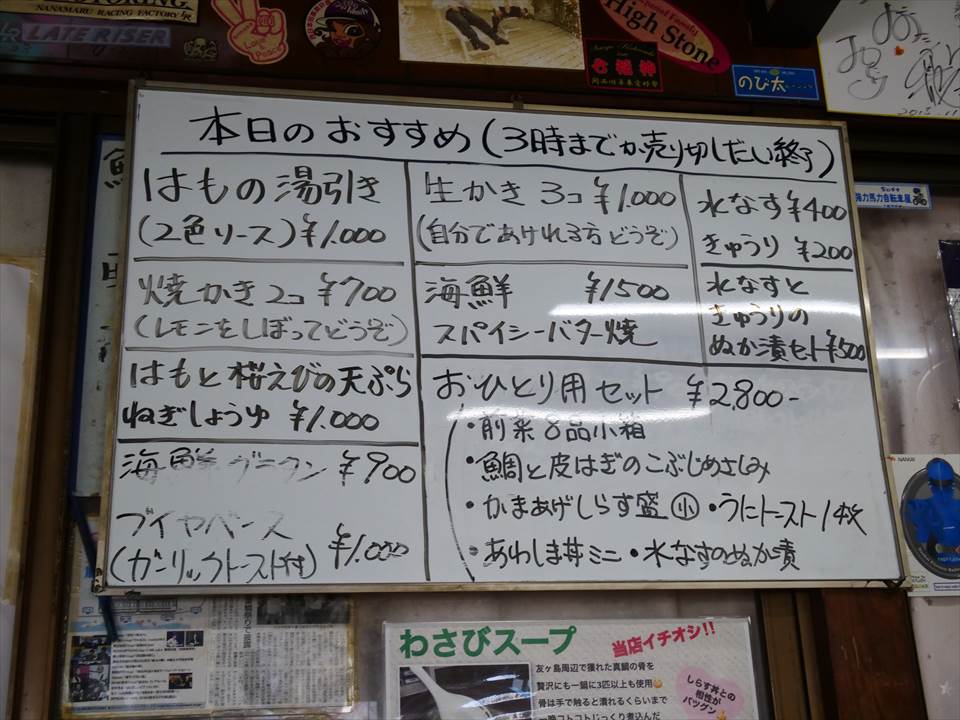 NANAMARU RACING FACTORY
LATE RISER
Love & Peace
High Stone
七福神
のび太
本日のおすすめ(3時までか売り切しだい終了)
はもの湯引き
(2色ソース)¥1.000
焼かき2コ ¥700
(レモンをしぼってどうぞ)
はもと桜えびの天ぷら
ねぎしょうゆ ¥1.000
海鮮グラタン ¥900
ブイヤベース
(ガーリックトースト付) ¥1.000
生かき 3コ ¥1.000
(自分であけれる方どうぞ)
海鮮 ¥1500
スパイシーバター焼
水なす ¥400
きゅうり ¥200
水なすと
きゅうりの
ぬか漬セット ¥500
おひとり用セット ¥2,800-
・前菜8品小箱
・鯛と皮はぎのこぶじめさしみ
・かまあげしらす盛(小)・うにトースト1枚
・あわしま丼ミニ・水なすのぬか漬
強力馬力自転車屋
わさびスープ 当店イチオシ!!
友ヶ島周辺で獲れた真鯛の骨を
贅沢にも一鍋に3匹以上も使用
骨は手で触ると潰れるくらいまで
しらす丼との
相性が
バツグン